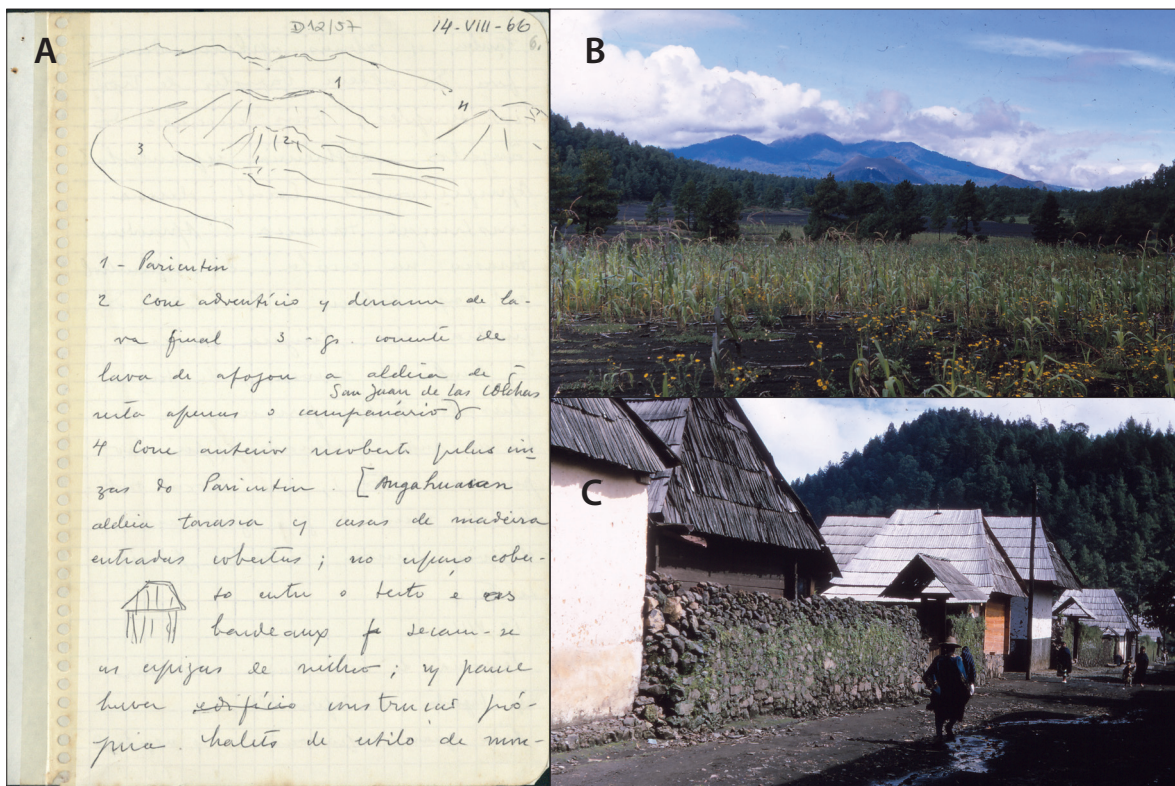 A
D12/57
14-VIII-66
6.
1
2
3
4
1 - Paricutin
2 Cone adventício y derrame de la-
va final 3 - gr. corrente de
lava de afogou a aldeia de
San Juan de las Colchas
resta apenas o campanário
4 Cone anterior recoberto pelas cin-
zas do Paricutin. [Angahuan
aldeia tarasca y casas de madeira
entradas cobertas; no espaço cober-
to entre o tecto e os
bardeaux secam-se
as espigas de milho; parece
haver edifício construção pró-
pria. de estilo de
B
C